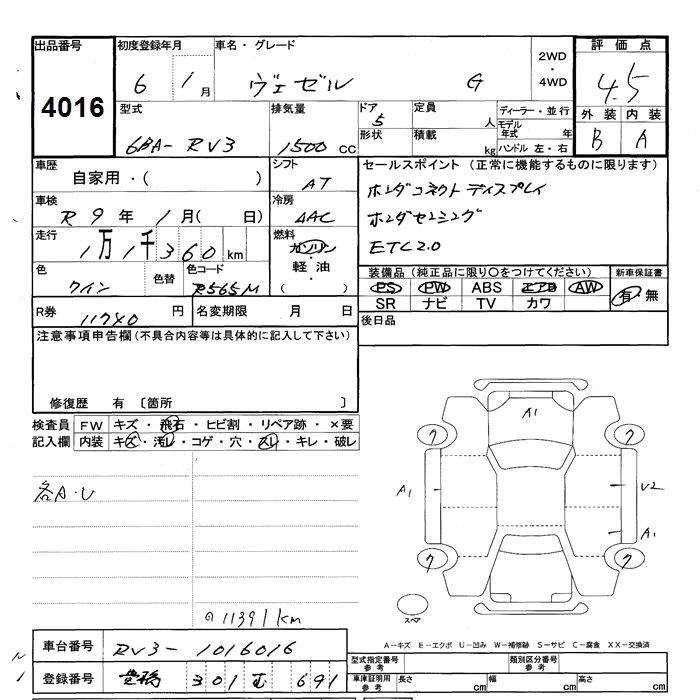 出品番号 初度登録年月 車名・グレード 2WD・4WD 評価点
4016 6 1月 ヴェゼル G 4.5
型式 排気量 ドア 定員 ディーラー・並行 外装 内装
6BA- RV3 1500 cc 5 人 モデル年式 年 B A
形状 積載 kg ハンドル 左・右
車歴 シフト セールスポイント (正常に機能するものに限ります)
自家用・( ) AT ホンダコネクトディスプレイ
車検 冷房 ホンダセンシング
R 9年 1月( 日) AAC ETC2.0
走行 燃料
1万1千360km ガソリン・軽油・( )
色 色替 色コード 装備品 (純正品に限り○をつけてください) 新車保証書
ワイン R565M PS PW ABS エアB AW 有・無
SR ナビ TV カワ
R券 11740 円 名変期限 月 日 後日品
注意事項申告欄 (不具合内容等は具体的に記入して下さい)
修復歴 有 〔箇所 〕
検査員 FW キズ・飛石・ヒビ割・リペア跡・×要
記入欄 内装 キズ・汚レ・コゲ・穴・スレ・キレ・破レ
各A・U
A1
7 7
A1 U2
A1
7 7
スペア
11391km
A−キズ E−エクボ U−凹み W−補修跡 S−サビ C−腐食 XX−交換済
車台番号 RV3-1016016 型式指定番号 参考 類別区分番号 参考
登録番号 豊橋 301 む 691 車庫証明用 参考 長さ cm 幅 cm 高さ cm